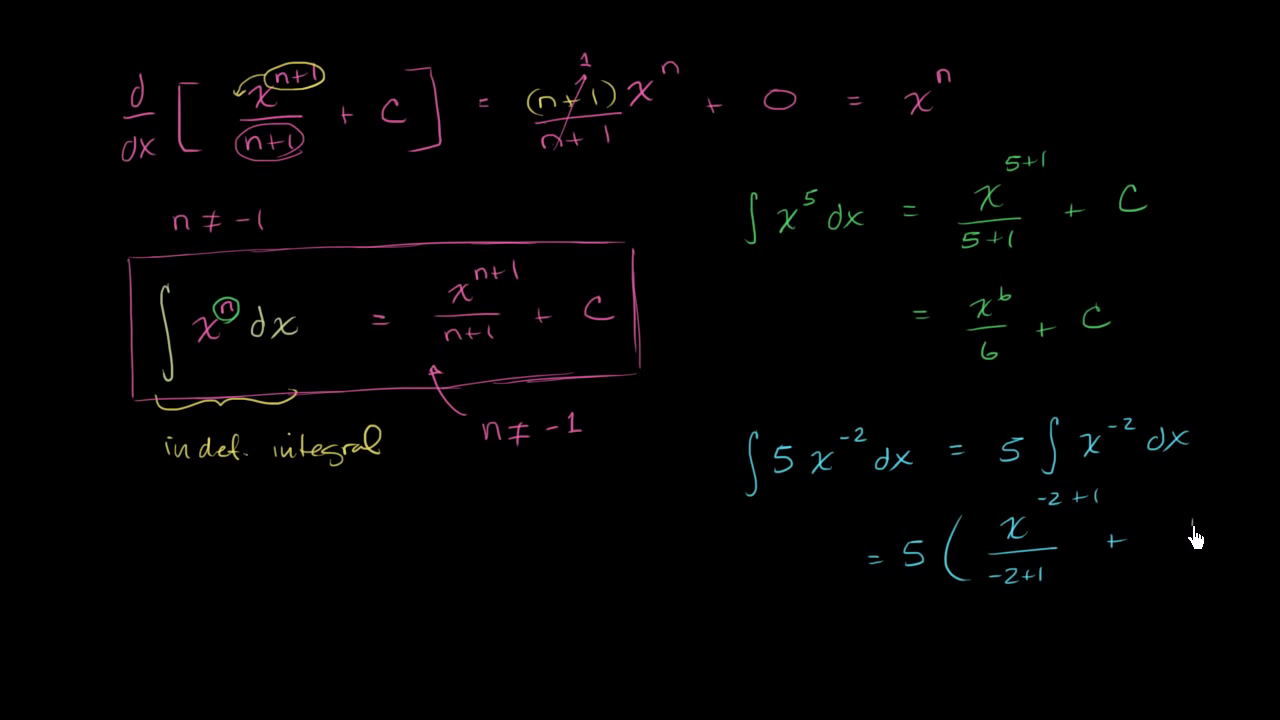 d/dx [ x^(n+1)/(n+1) + C ] = (n+1)x^n/(n+1) 1 + 0 = x^n
n ≠ -1
∫ x^n dx = x^(n+1)/(n+1) + C
n ≠ -1
indef. integral
∫ x^5 dx = x^(5+1)/(5+1) + C
= x^6/6 + C
∫ 5x^-2 dx = 5 ∫ x^-2 dx
= 5 ( x^(-2+1)/(-2+1) +